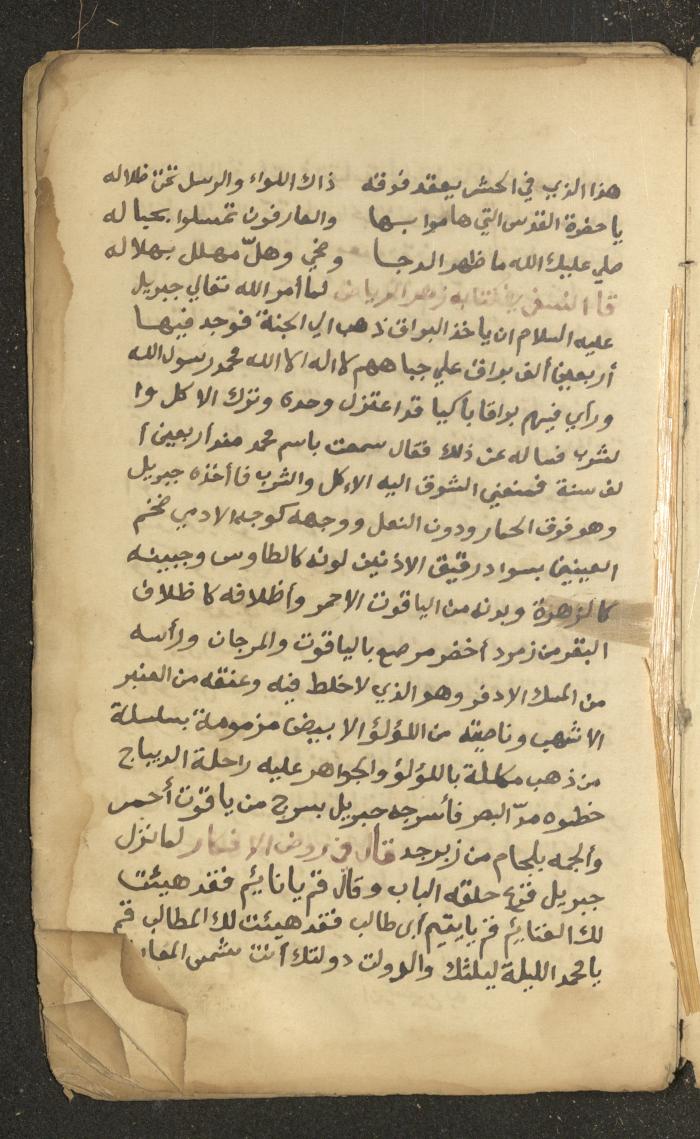 هذا الذي في الحشر يعقد فوقه ذاك اللواء والرسل تحت ظلاله
يا حضرة القدس التي هاموا بها والعارفون تمسلوا بحباله
صلي عليك الله ما ظهر الدجا وضحي وهلّ مهلل بهلاله
قال النسفي في كتابه زهر الرياض لما أمر الله تعالي جبريل
عليه السلام ان يأخذ البراق ذهب الي الجنة فوجد فيها
أربعين ألف براق علي جباههم لا اله الا الله محمد رسول الله
ورأي فيهم براقا باكيا قد اعتزل وحده وترك الاكل وا
لشرب فساله عن ذلك فقال سمعت باسم محمد منذ أربعين أ
لف سنة فمنعني الشوق اليه الاكل والشرب فأخذه جبريل
وهو فوق الحمار ودون البغل ووجهه كوجه الادمي ضخم
العينين بسواد رقيق الاذنين لونه كالطاوس وجبينه
كالزهرة وبدنه من الياقوت الاحمر وأظلافه كاظلاف
البقر من زمرد أخضر مرصع بالياقوت والمرجان ورأسه
من المسك الادفر وهو الذي لا خلط فيه وعنقه من العنبر
الاشهب وناصيته من اللؤلؤ الابيض مزمومة بسلسلة
من ذهب مكللة باللؤلؤ والجواهر عليه راحلة الديباج
خطوه مدّ البصر فأسرجه جبريل بسرج من ياقوت أحمر
وألجمه بلجام من زبرجد قال في روض الافكار لما نزل
جبريل قرع حلقه الباب وقال قم يا نائم فقد هيئت
لك الغنائم قم يا يتيم أبي طالب فقد هيئت لك المطالب قم
يا محمد الليلة ليلتك والدولت دولتك أنت شمس